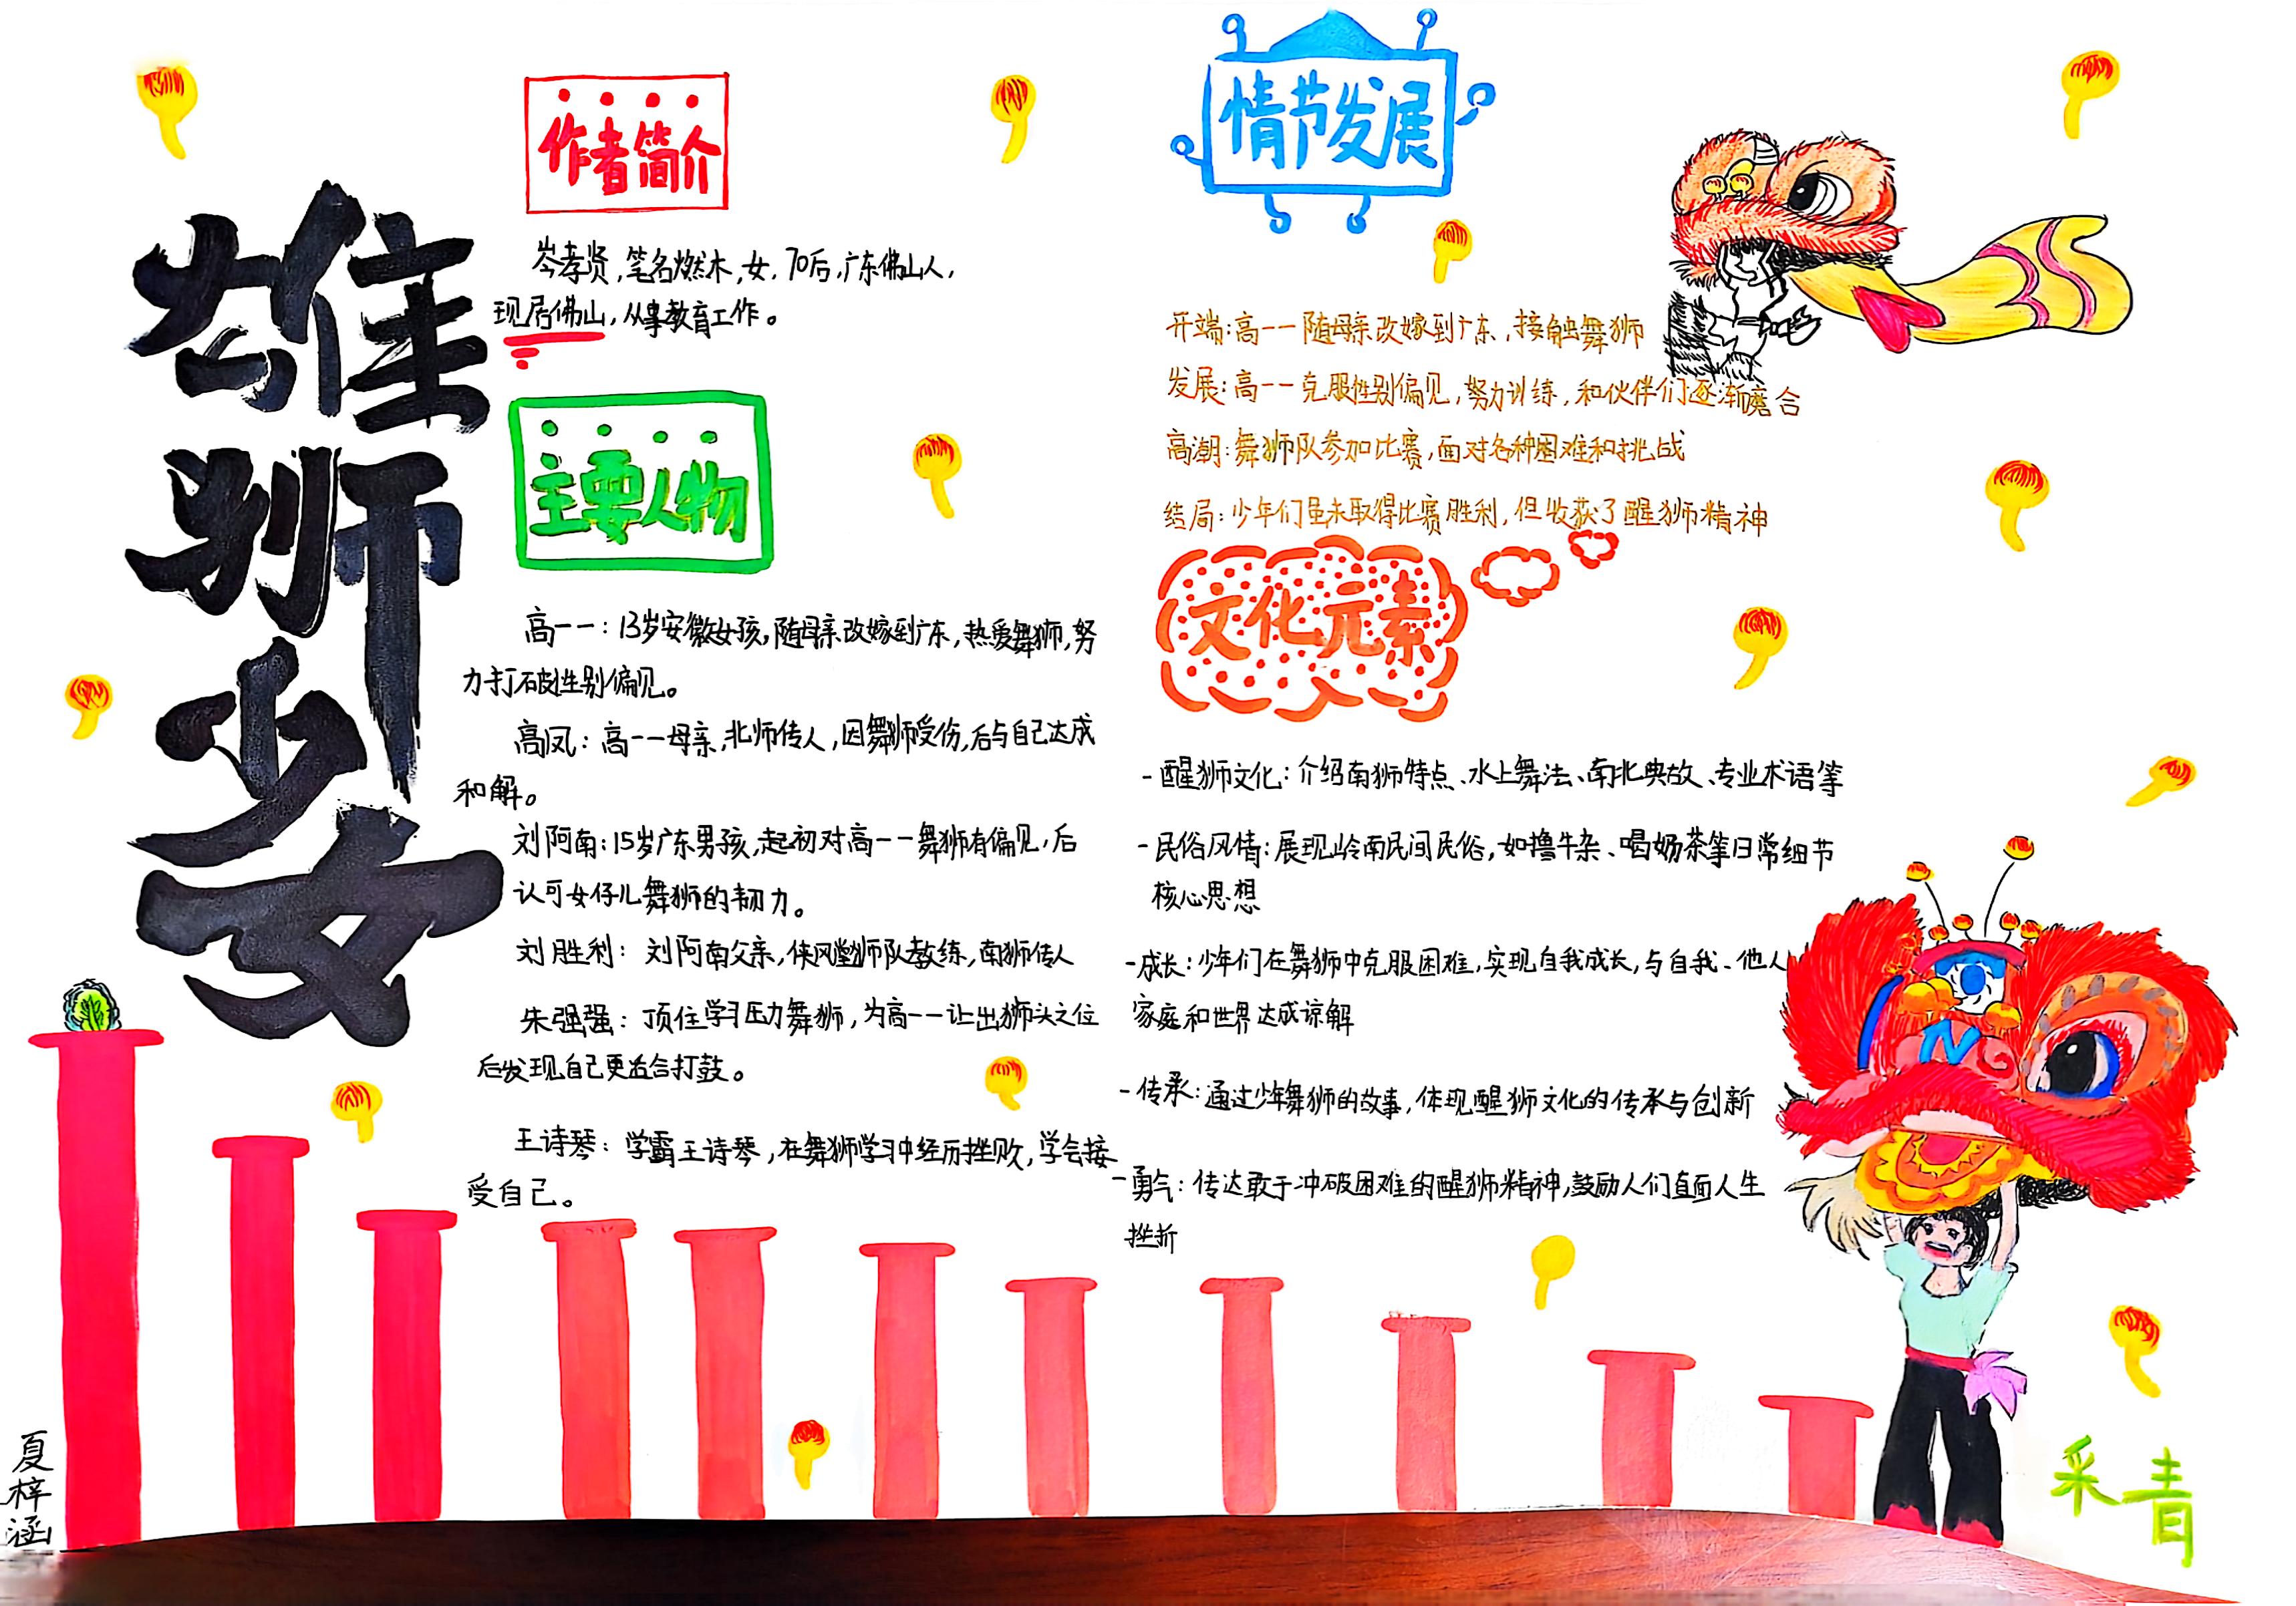 雄狮少女
作者简介
岑孝贤,笔名燃木,女,70后,广东佛山人,
现居佛山,从事教育工作。
主要人物
高一一:13岁安徽女孩,随母亲改嫁到广东,热爱舞狮,努
力打破性别偏见。
高凤:高一一母亲,北师传人,因舞狮受伤,后与自己达成
和解。
刘阿南:15岁广东男孩,起初对高一一舞狮有偏见,后
认可女仔儿舞狮的韧力。
刘胜利:刘阿南父亲,侠风堂狮队教练,南狮传人
朱强强:顶住学习压力舞狮,为高一一让出狮头之位
后发现自己更适合打鼓。
王诗琴:学霸王诗琴,在舞狮学习中经历挫败,学会接
受自己。
情节发展
开端:高一一随母亲改嫁到广东,接触舞狮
发展:高一一克服性别偏见,努力训练,和伙伴们逐渐磨合
高潮:舞狮队参加比赛,面对各种困难和挑战
结局:少年们虽未取得比赛胜利,但收获了醒狮精神
文化元素
-醒狮文化:介绍南狮特点、水上舞法、南北典故、专业术语等
-民俗风情:展现岭南民间民俗,如撸牛杂、喝奶茶等日常细节
核心思想
-成长:少年们在舞狮中克服困难,实现自我成长,与自我、他人
家庭和世界达成谅解
-传承:通过少年舞狮的故事,体现醒狮文化的传承与创新
-勇气:传达敢于冲破困难的醒狮精神,鼓励人们直面人生
挫折
夏梓涵
采青